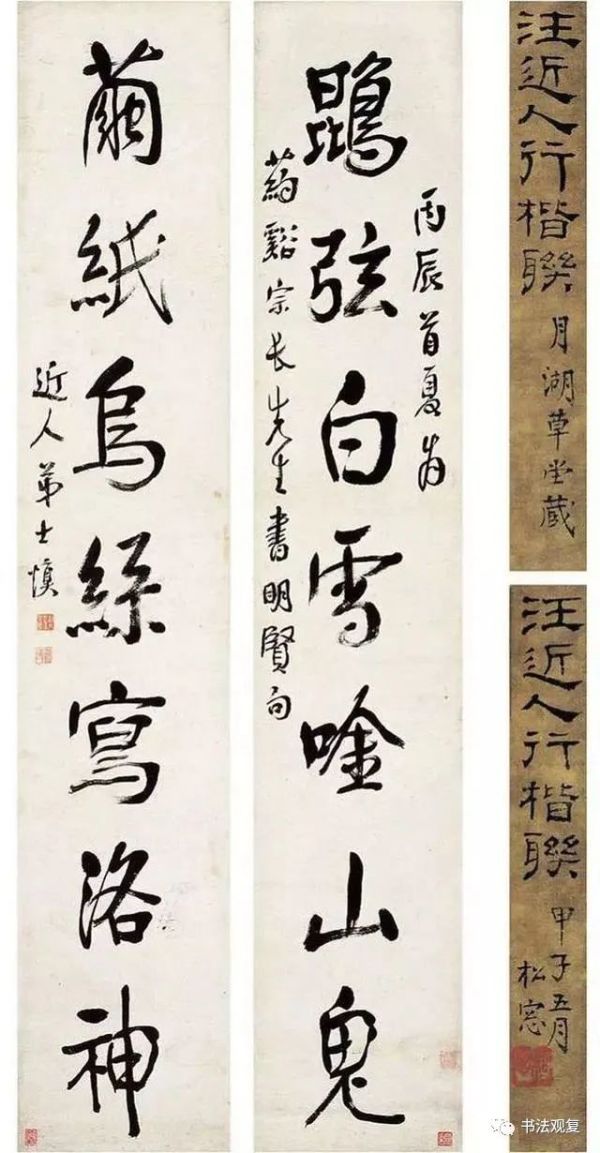 鵾弦白雪唫山鬼
丙辰首夏為
葯谿宗長先生書明賢句
繭紙烏絲寫洛神
近人弟士慎
汪近人行楷聯
月湖草堂藏
汪近人行楷聯
甲子五月
松窓
书法观复